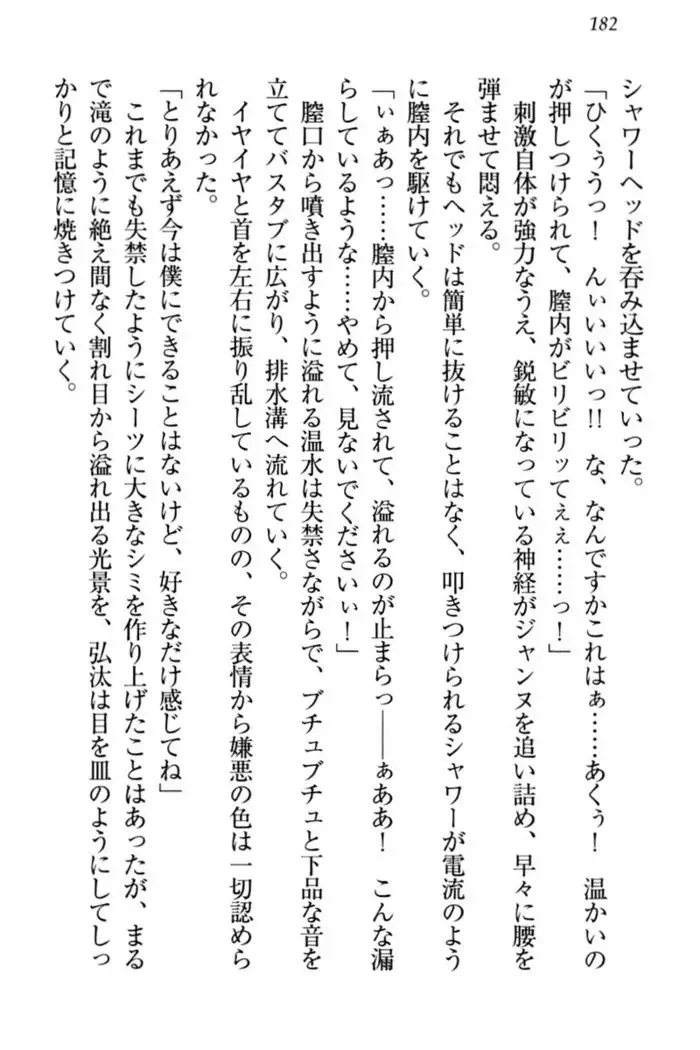 182
シャワーヘッドを呑み込ませていった。
「ひくぅうっ！　んぃいいいっ!!　な、なんですかこれはぁ……あくぅ！　温かいの
が押しつけられて、膣内がビリビリッてぇぇ……っ！」
刺激自体が強力なうえ、鋭敏になっている神経がジャンヌを追い詰め、早々に腰を
弾ませて悶える。
それでもヘッドは簡単に抜けることはなく、叩きつけられるシャワーが電流のよう
に膣内を駆けていく。
「ぃぁあっ……膣内から押し流されて、溢れるのが止まらっ――ぁああ！　こんな漏
らしているような……やめて、見ないでくださいぃ！」
膣口から噴き出すように溢れる温水は失禁さながらで、ブチュブチュと下品な音を
立ててバスタブに広がり、排水溝へ流れていく。
イヤイヤと首を左右に振り乱しているものの、その表情から嫌悪の色は一切認めら
れなかった。
「とりあえず今は僕にできることはないけど、好きなだけ感じてね」
これまでも失禁したようにシーツに大きなシミを作り上げたことはあったが、まる
で滝のように絶え間なく割れ目から溢れ出る光景を、弘汰は目を皿のようにしてしっ
かりと記憶に焼きつけていく。